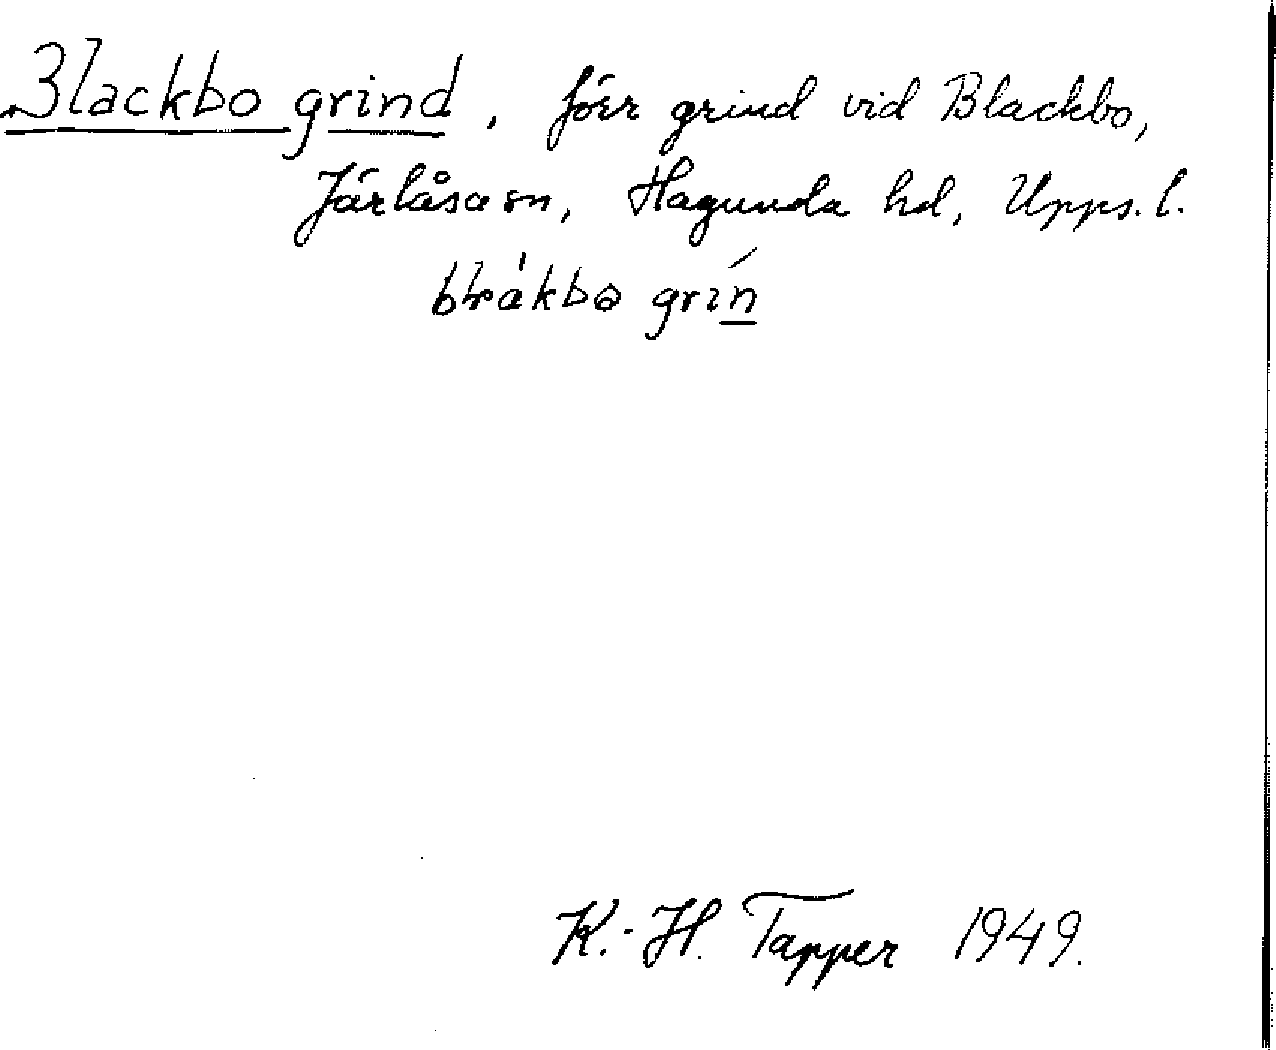 Blackbo grind, förr grind vid Blackbo,
Järlåsa sn, Hagunda hd, Upps. l.
grin
K.-H. Tapper 1949.